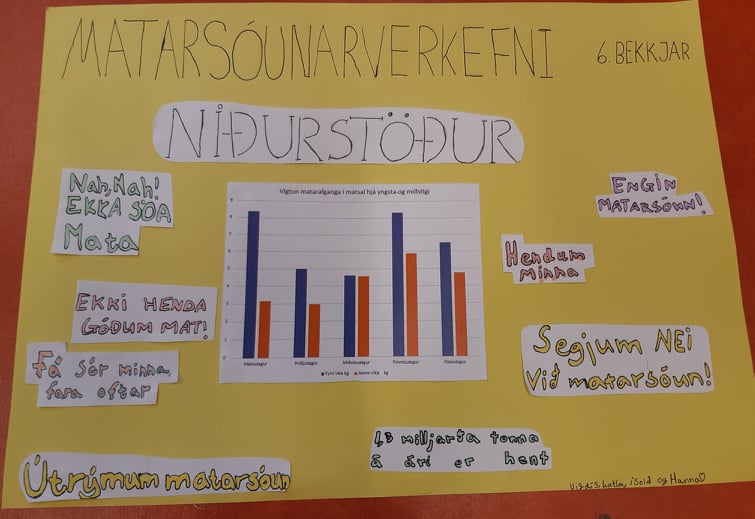 MATARSÓUNARVERKEFNI
6. BEKKJAR
NIÐURSTÖÐUR
Nah, Nah!
EKKA SÓA
Mata
EKKI HENDA
GÓÐUM MAT!
Fá sér minna,
fara oftar
Útrýmum matarsóun
Vigtun matarafganga í matsal hjá yngsta-og miðstigi
9
8
7
6
5
4
3
2
1
0
Mánudagur Þriðjudagur Miðvikudagur Fimmtudagur Föstudagur
Fyrri vika kg Seinni vika kg
ENGIN
MATARSÓUN!
Hendum
minna
Segjum NEI
við matarsóun!
1,3 milljarta tonna
á ári er hent
Vigdís, katla, ísold og Hanna